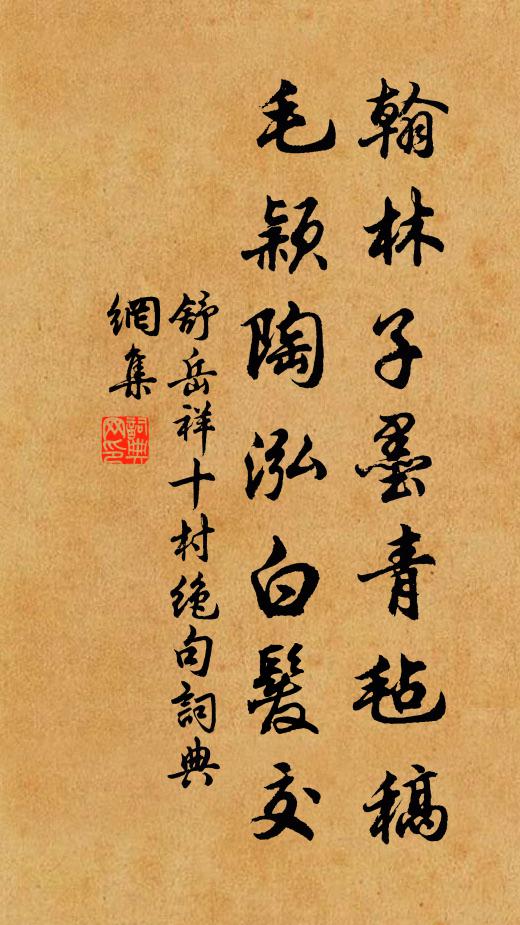 翰林子墨青毡稿
毛颖陶泓白髮交
舒岳祥十村绝句詞典
網集
詞典
网印